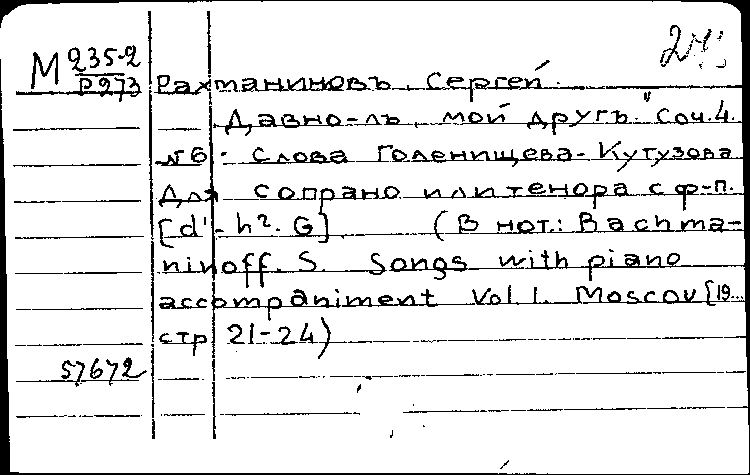 М 235-2
Р273
Рахманиновъ, Сергей.
Давно-ль, мой другъ." Соч.4.
№6: Слова Голенищева-Кутузова
Для сопрано или тенора с ф-п.
[d'-h². G] (В нот.: Bachma-
ninoff. S. Songs with piano
accompaniment Vol I. Moscov [19...
стр 21-24)
57672